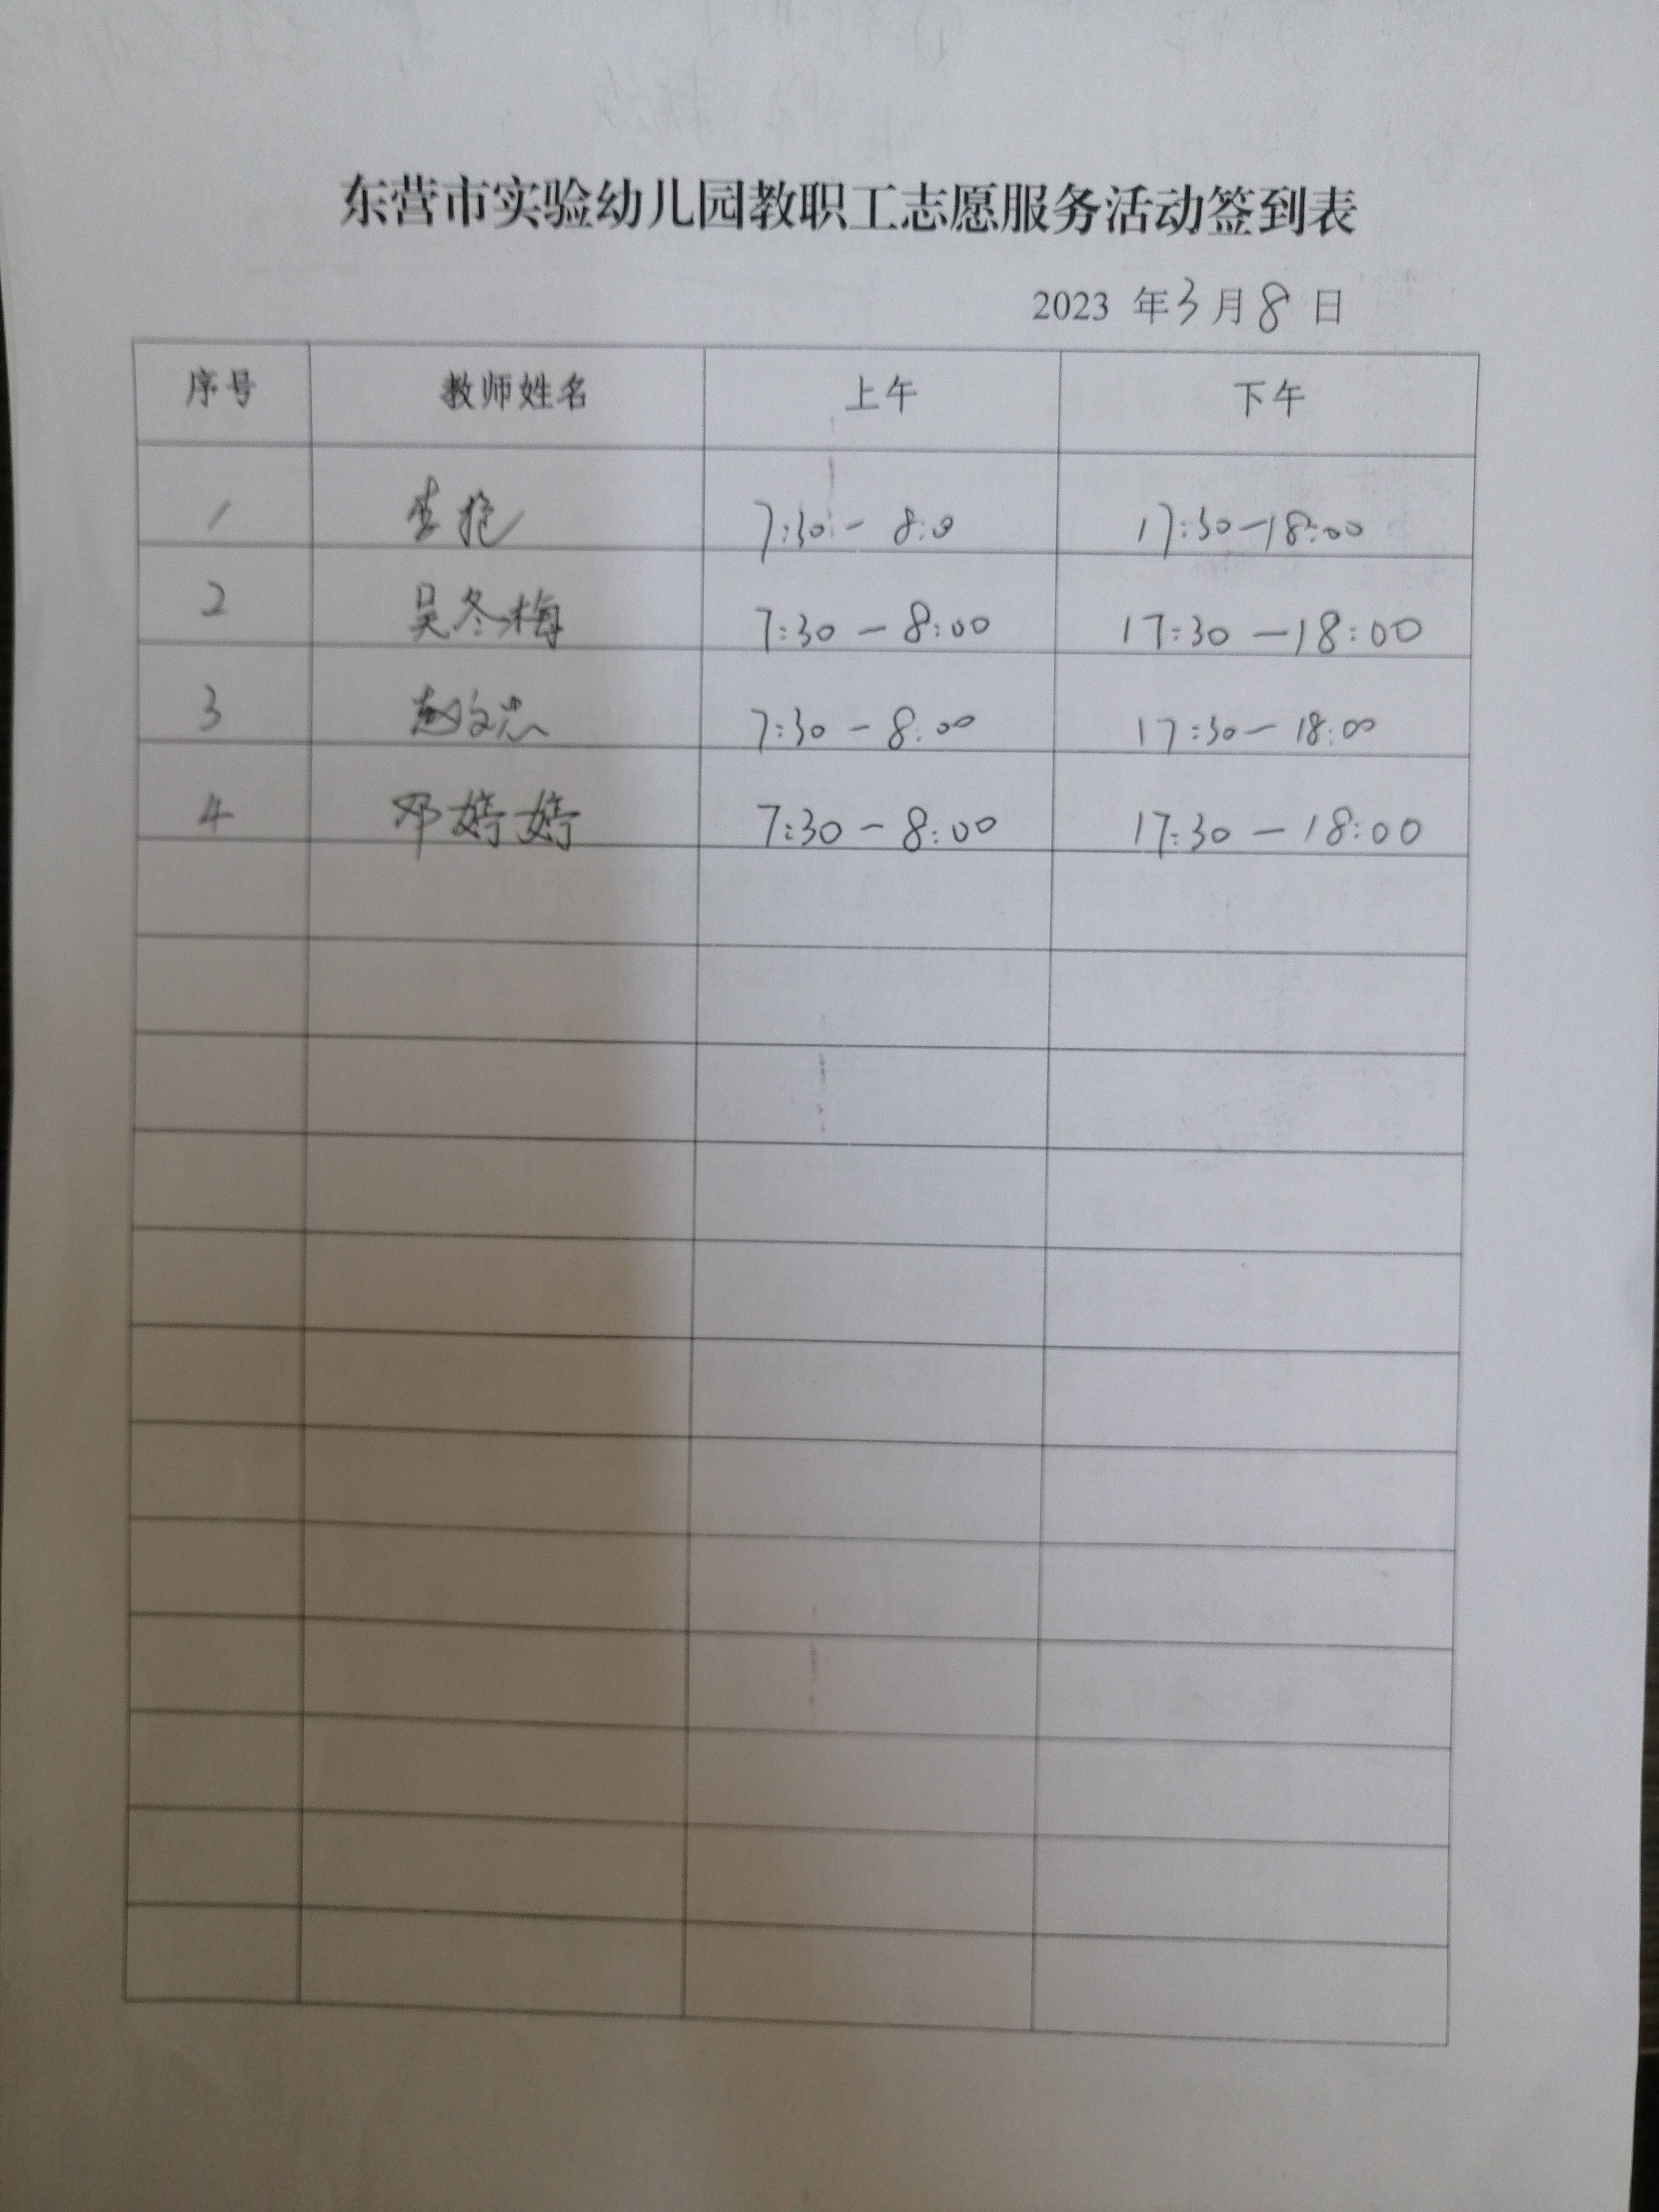 东营市实验幼儿园教职工志愿服务活动签到表
2023 年3月8日
序号 教师姓名 上午 下午
1 7:30- 8:0 17:30-18:00
2 吴冬梅 7:30-8:00 17:30-18:00
3 赵文忠 7:30-8:00 17:30-18:00
4 邓婷婷 7:30-8:00 17:30-18:00